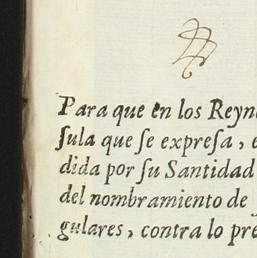 Para que en los Reyn
ſula que ſe expreſa, e
dida por ſu Santidad
del nombramiento de
gulares, contra lo pre